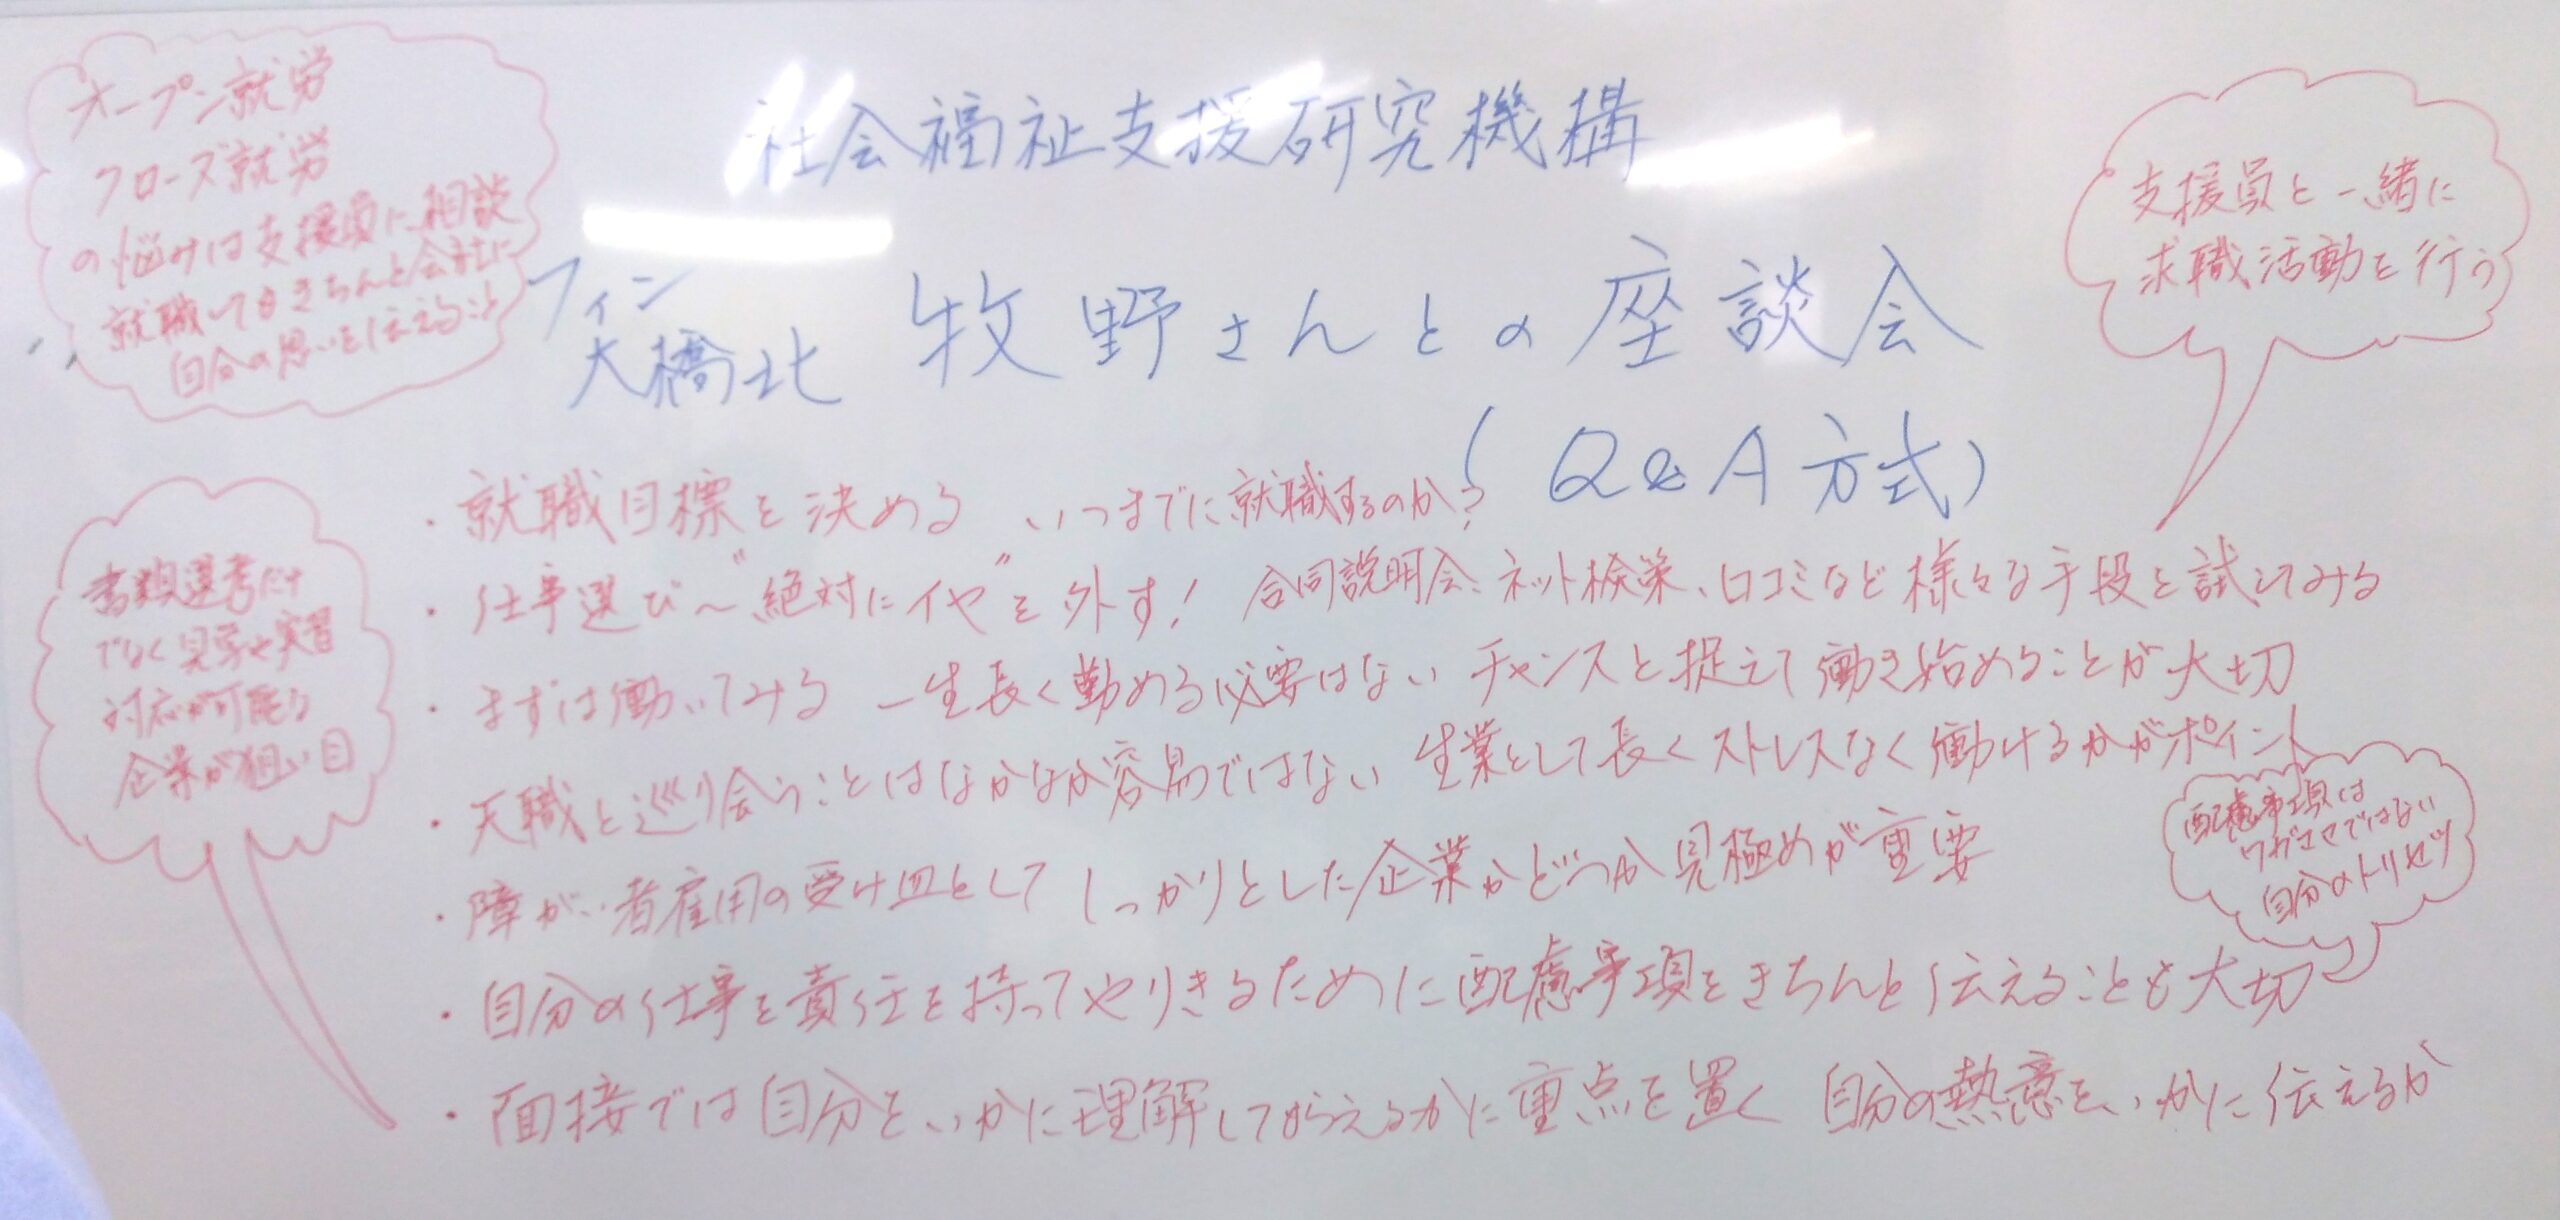 社会福祉支援研究機構
フィン
大橋北
牧野さんとの座談会
(Q&A方式)
オープン就労
クローズ就労
の悩みは支援員に相談
就職してもきちんと会社に
自分の思いを伝えること
支援員と一緒に
求職活動を行う
・就職目標を決める いつまでに就職するのか?
・仕事選び~"絶対にイヤ"を外す! 合同説明会、ネット検索、口コミなど様々な手段を試してみる
・まずは働いてみる 一生長く勤める必要はない チャンスと捉えて働き始めることが大切
・天職と巡り会うことはなかなか容易ではない 生業として長くストレスなく働けるかがポイント
・障がい者雇用の受け皿として しっかりとした企業かどうか見極めが重要
・自分の仕事を責任を持ってやりきるために配慮事項をきちんと伝えることも大切
・面接では自分をいかに理解してもらえるかに重点を置く 自分の熱意をいかに伝えるか
書類選考だけ
でなく見学や実習
対応が可能な
企業が狙い目
配慮事項は
ワガママではない
自分のトリセツ